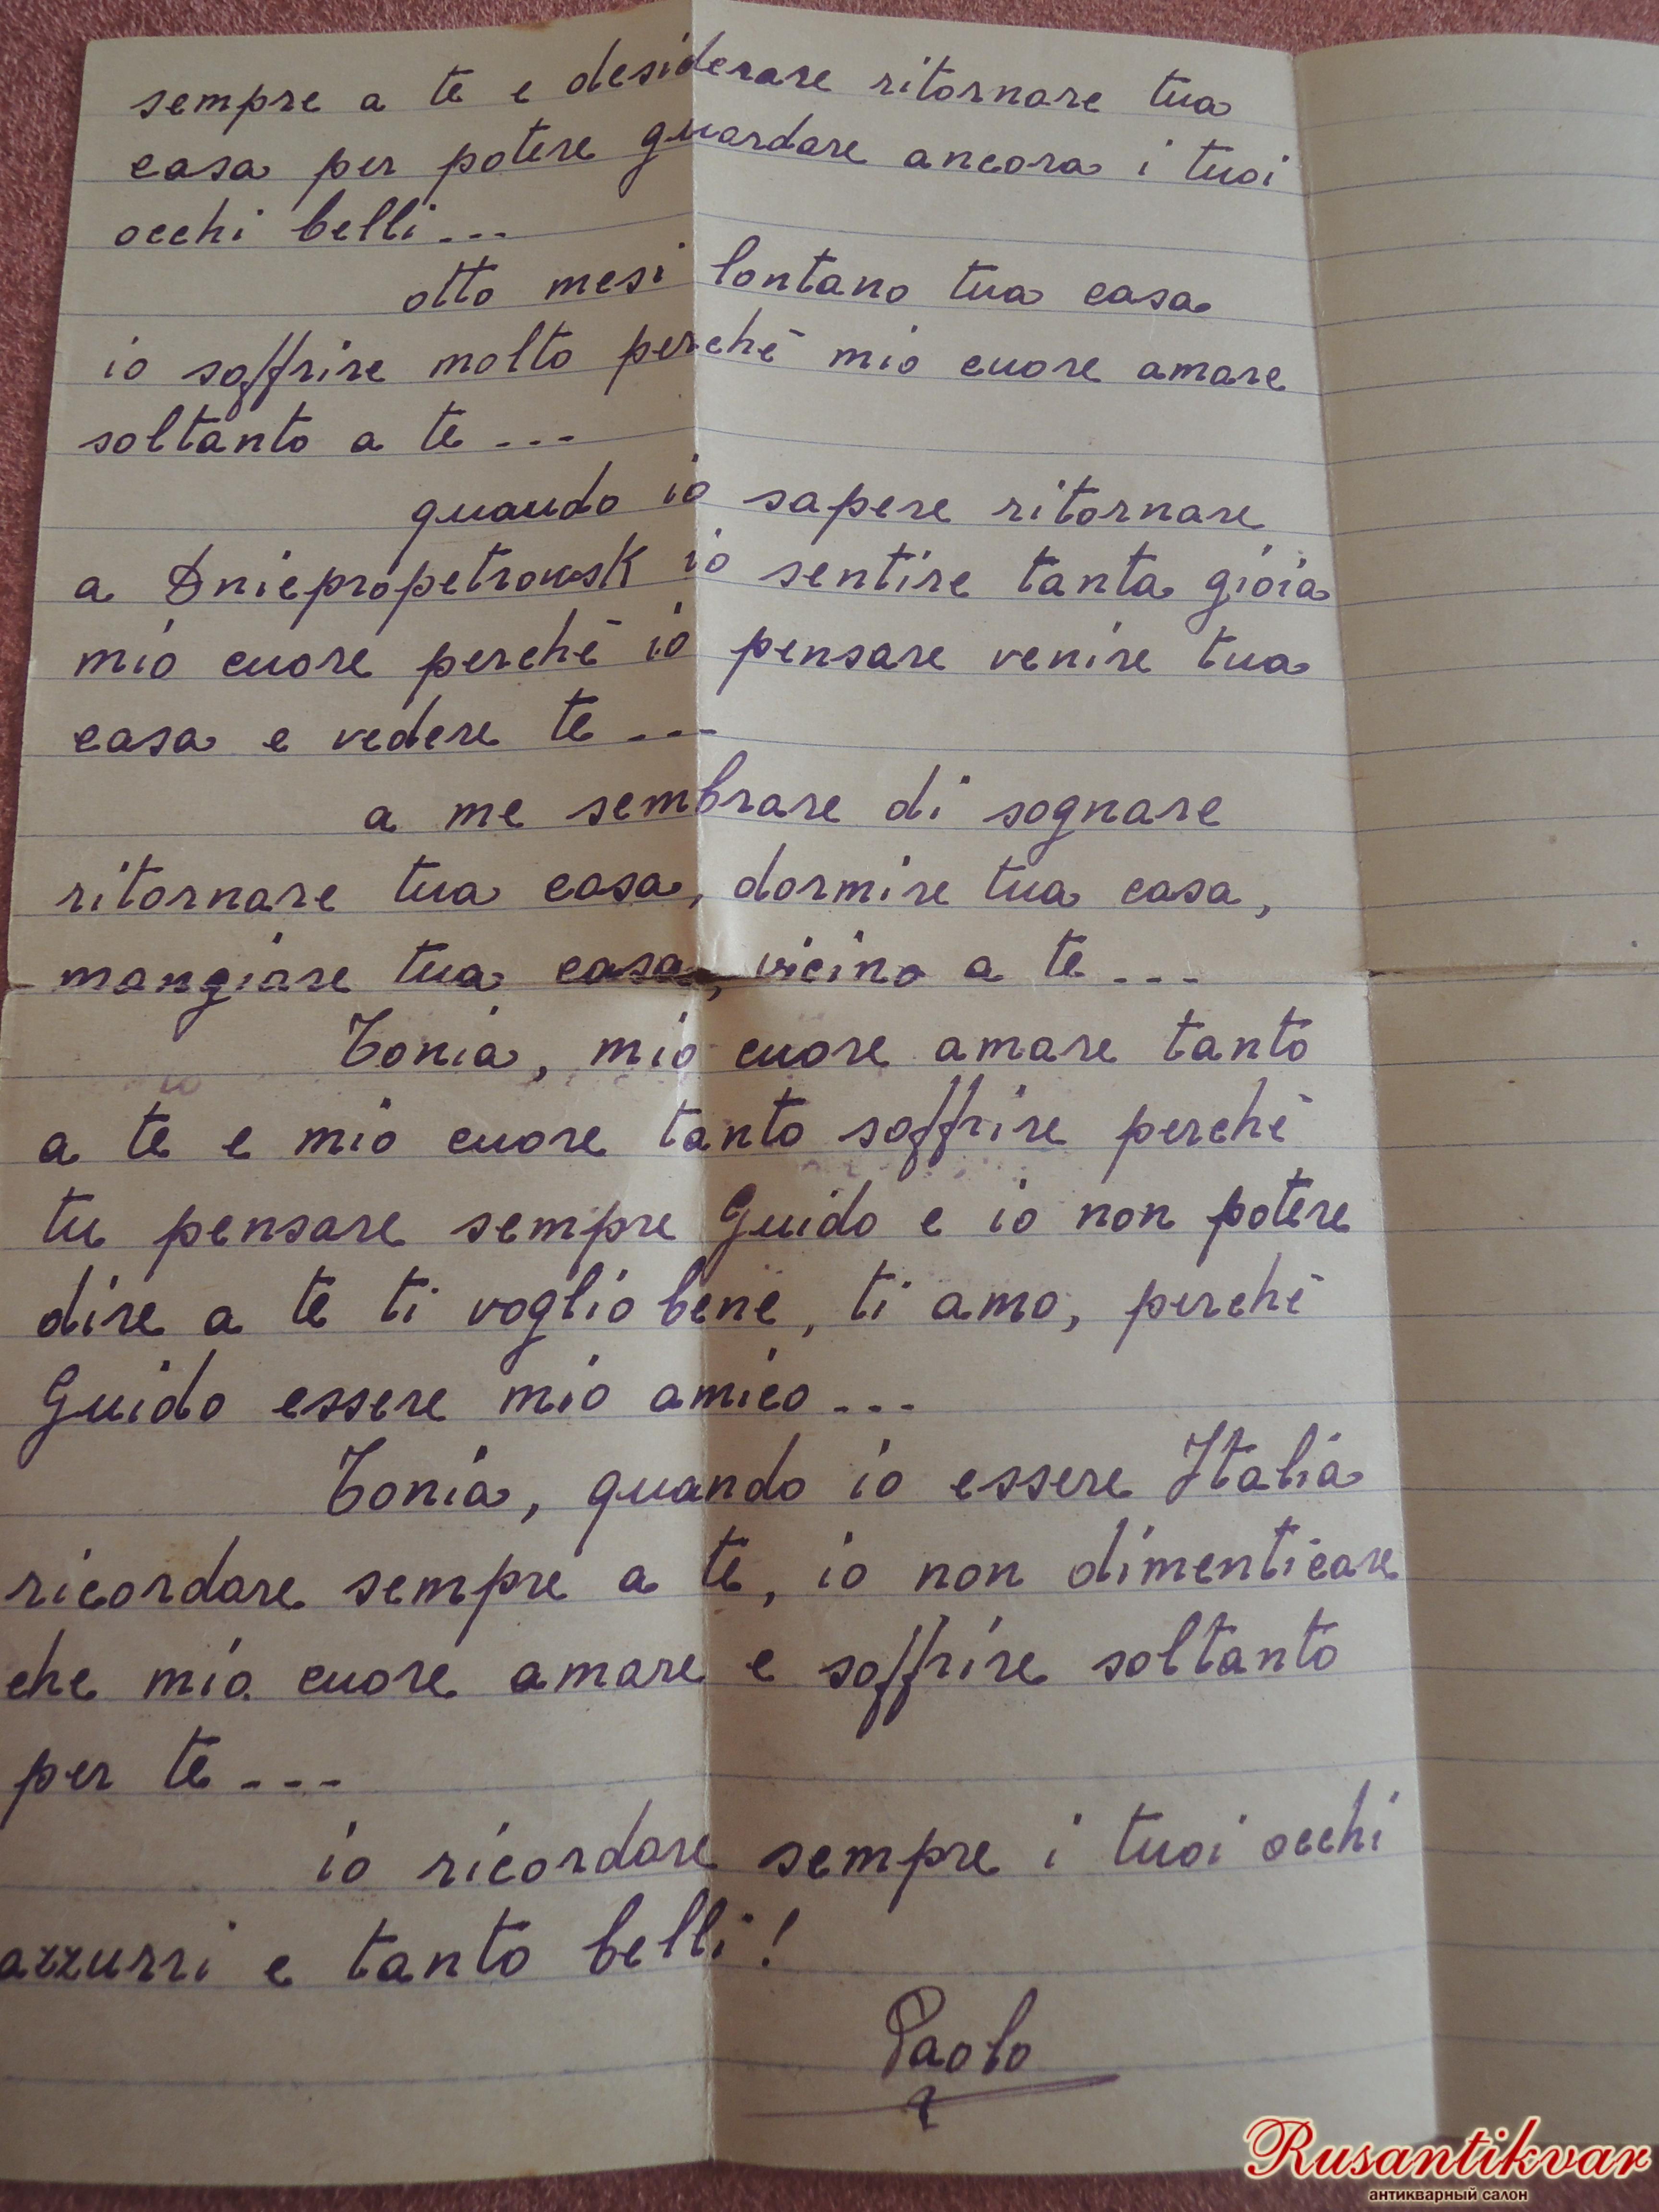 sempre a te e desiderare ritornare tua
casa per potere guardare ancora i tuoi
occhi belli...
otto mesi lontano tua casa
io soffrire molto perchè mio cuore amare
soltanto a te...
quando io sapere ritornare
a Dniepropetrowsk io sentire tanta gioia
mio cuore perchè io pensare venire tua
casa e vedere te...
a me sembrare di sognare
ritornare tua casa, dormire tua casa,
mangiare tua casa, vicino a te...
Tonia, mio cuore amare tanto
a te e mio cuore tanto soffrire perchè
tu pensare sempre Guido e io non potere
dire a te ti voglio bene, ti amo, perchè
Guido essere mio amico...
Tonia, quando io essere Italia
ricordare sempre a te, io non dimenticare
che mio cuore amare e soffrire soltanto
per te...
io ricordare sempre i tuoi occhi
azzurri e tanto belli!
Paolo
Rusantikvar
антикварный салон